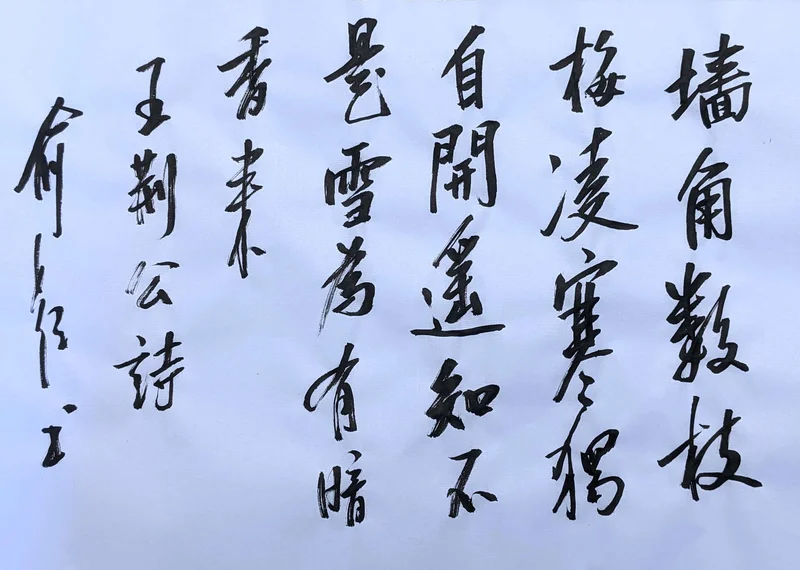 墙角数枝
梅凌寒独
自開遥知不
是雪為有暗
香来
王荆公詩
俞